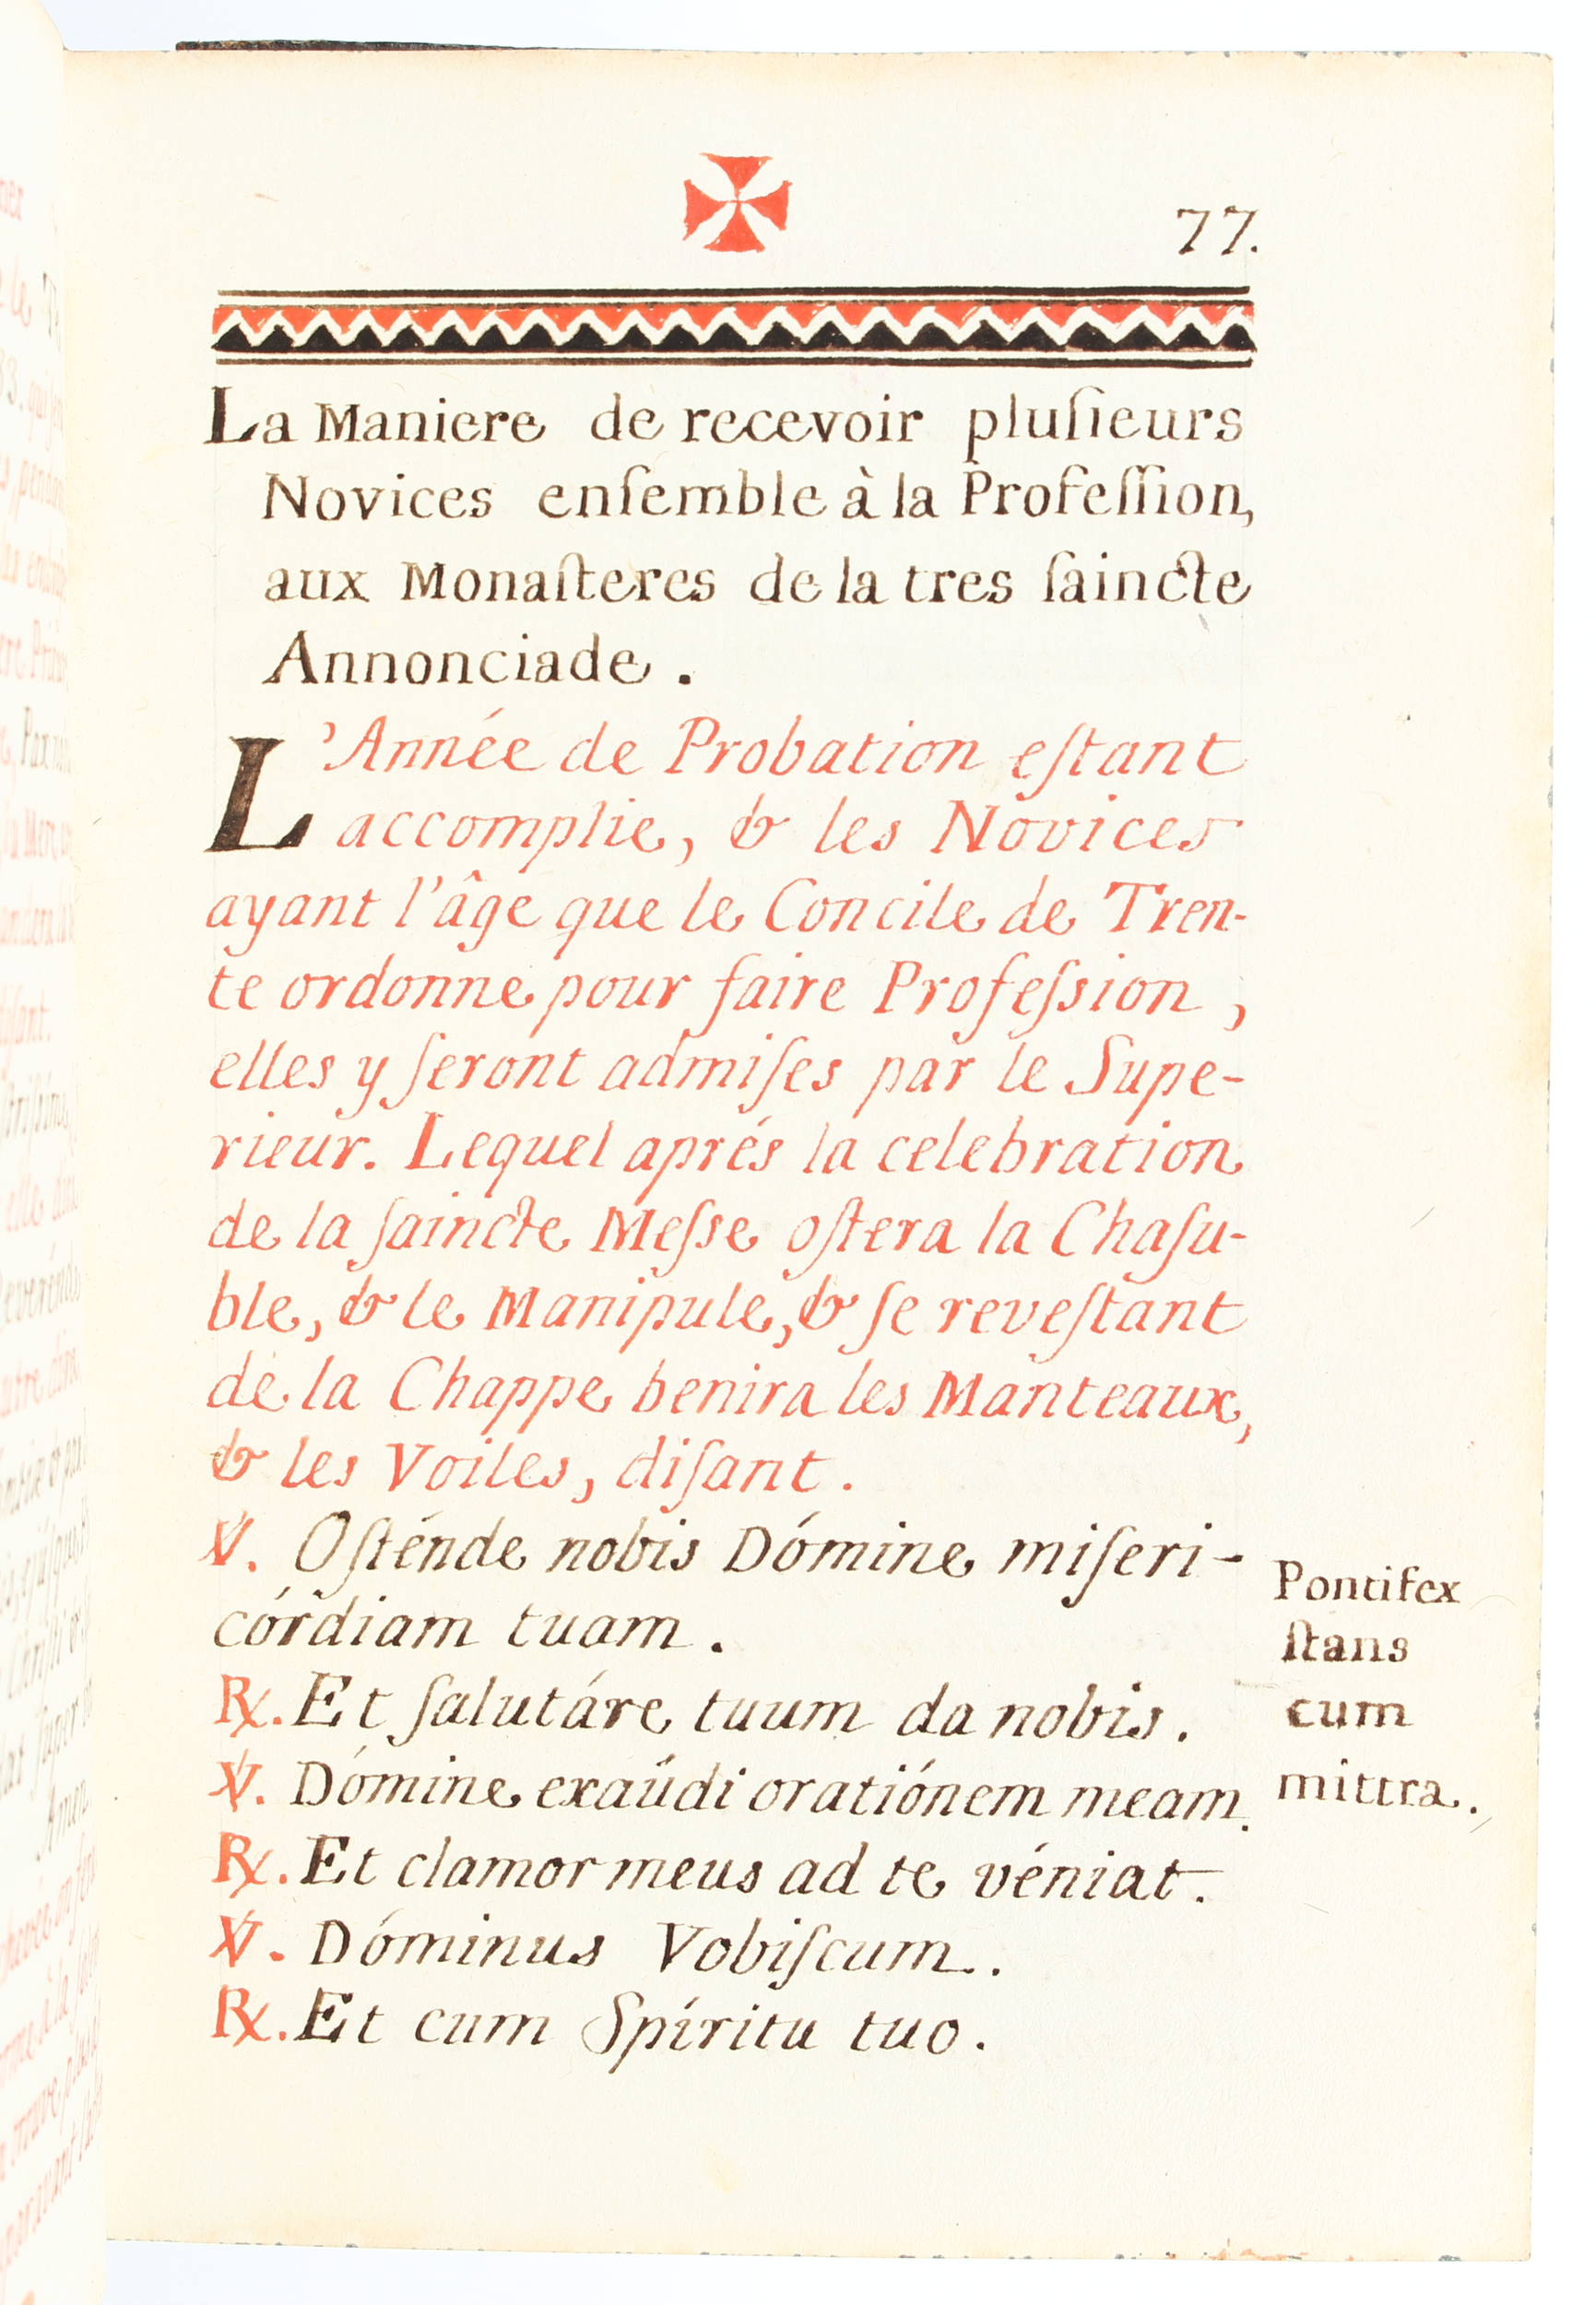 77.
La Maniere de recevoir pluſieurs
Novices enſemble à la Profeſſion,
aux Monaſteres de la tres ſaincte
Annonciade.
L'Année de Probation eſtant
accomplie, & les Novices
ayant l'âge que le Concile de Tren-
te ordonne pour faire Profeſsion,
elles y ſeront admiſes par le Supe-
rieur. Lequel aprés la celebration
de la ſaincte Meſse oſtera la Chaſu-
ble, & le Manipule, & ſe reveſtant
de la Chappe benira les Manteaux,
& les Voiles, diſant.
℣. Oſténde nobis Dómine miſeri-
córdiam tuam.
℟. Et ſalutáre tuum da nobis.
℣. Dómine exaúdi oratiónem meam.
℟. Et clamor meus ad te véniat.
℣. Dóminus Vobiſcum.
℟. Et cum Spíritu tuo.
Pontifex
ſtans
cum
mittra.